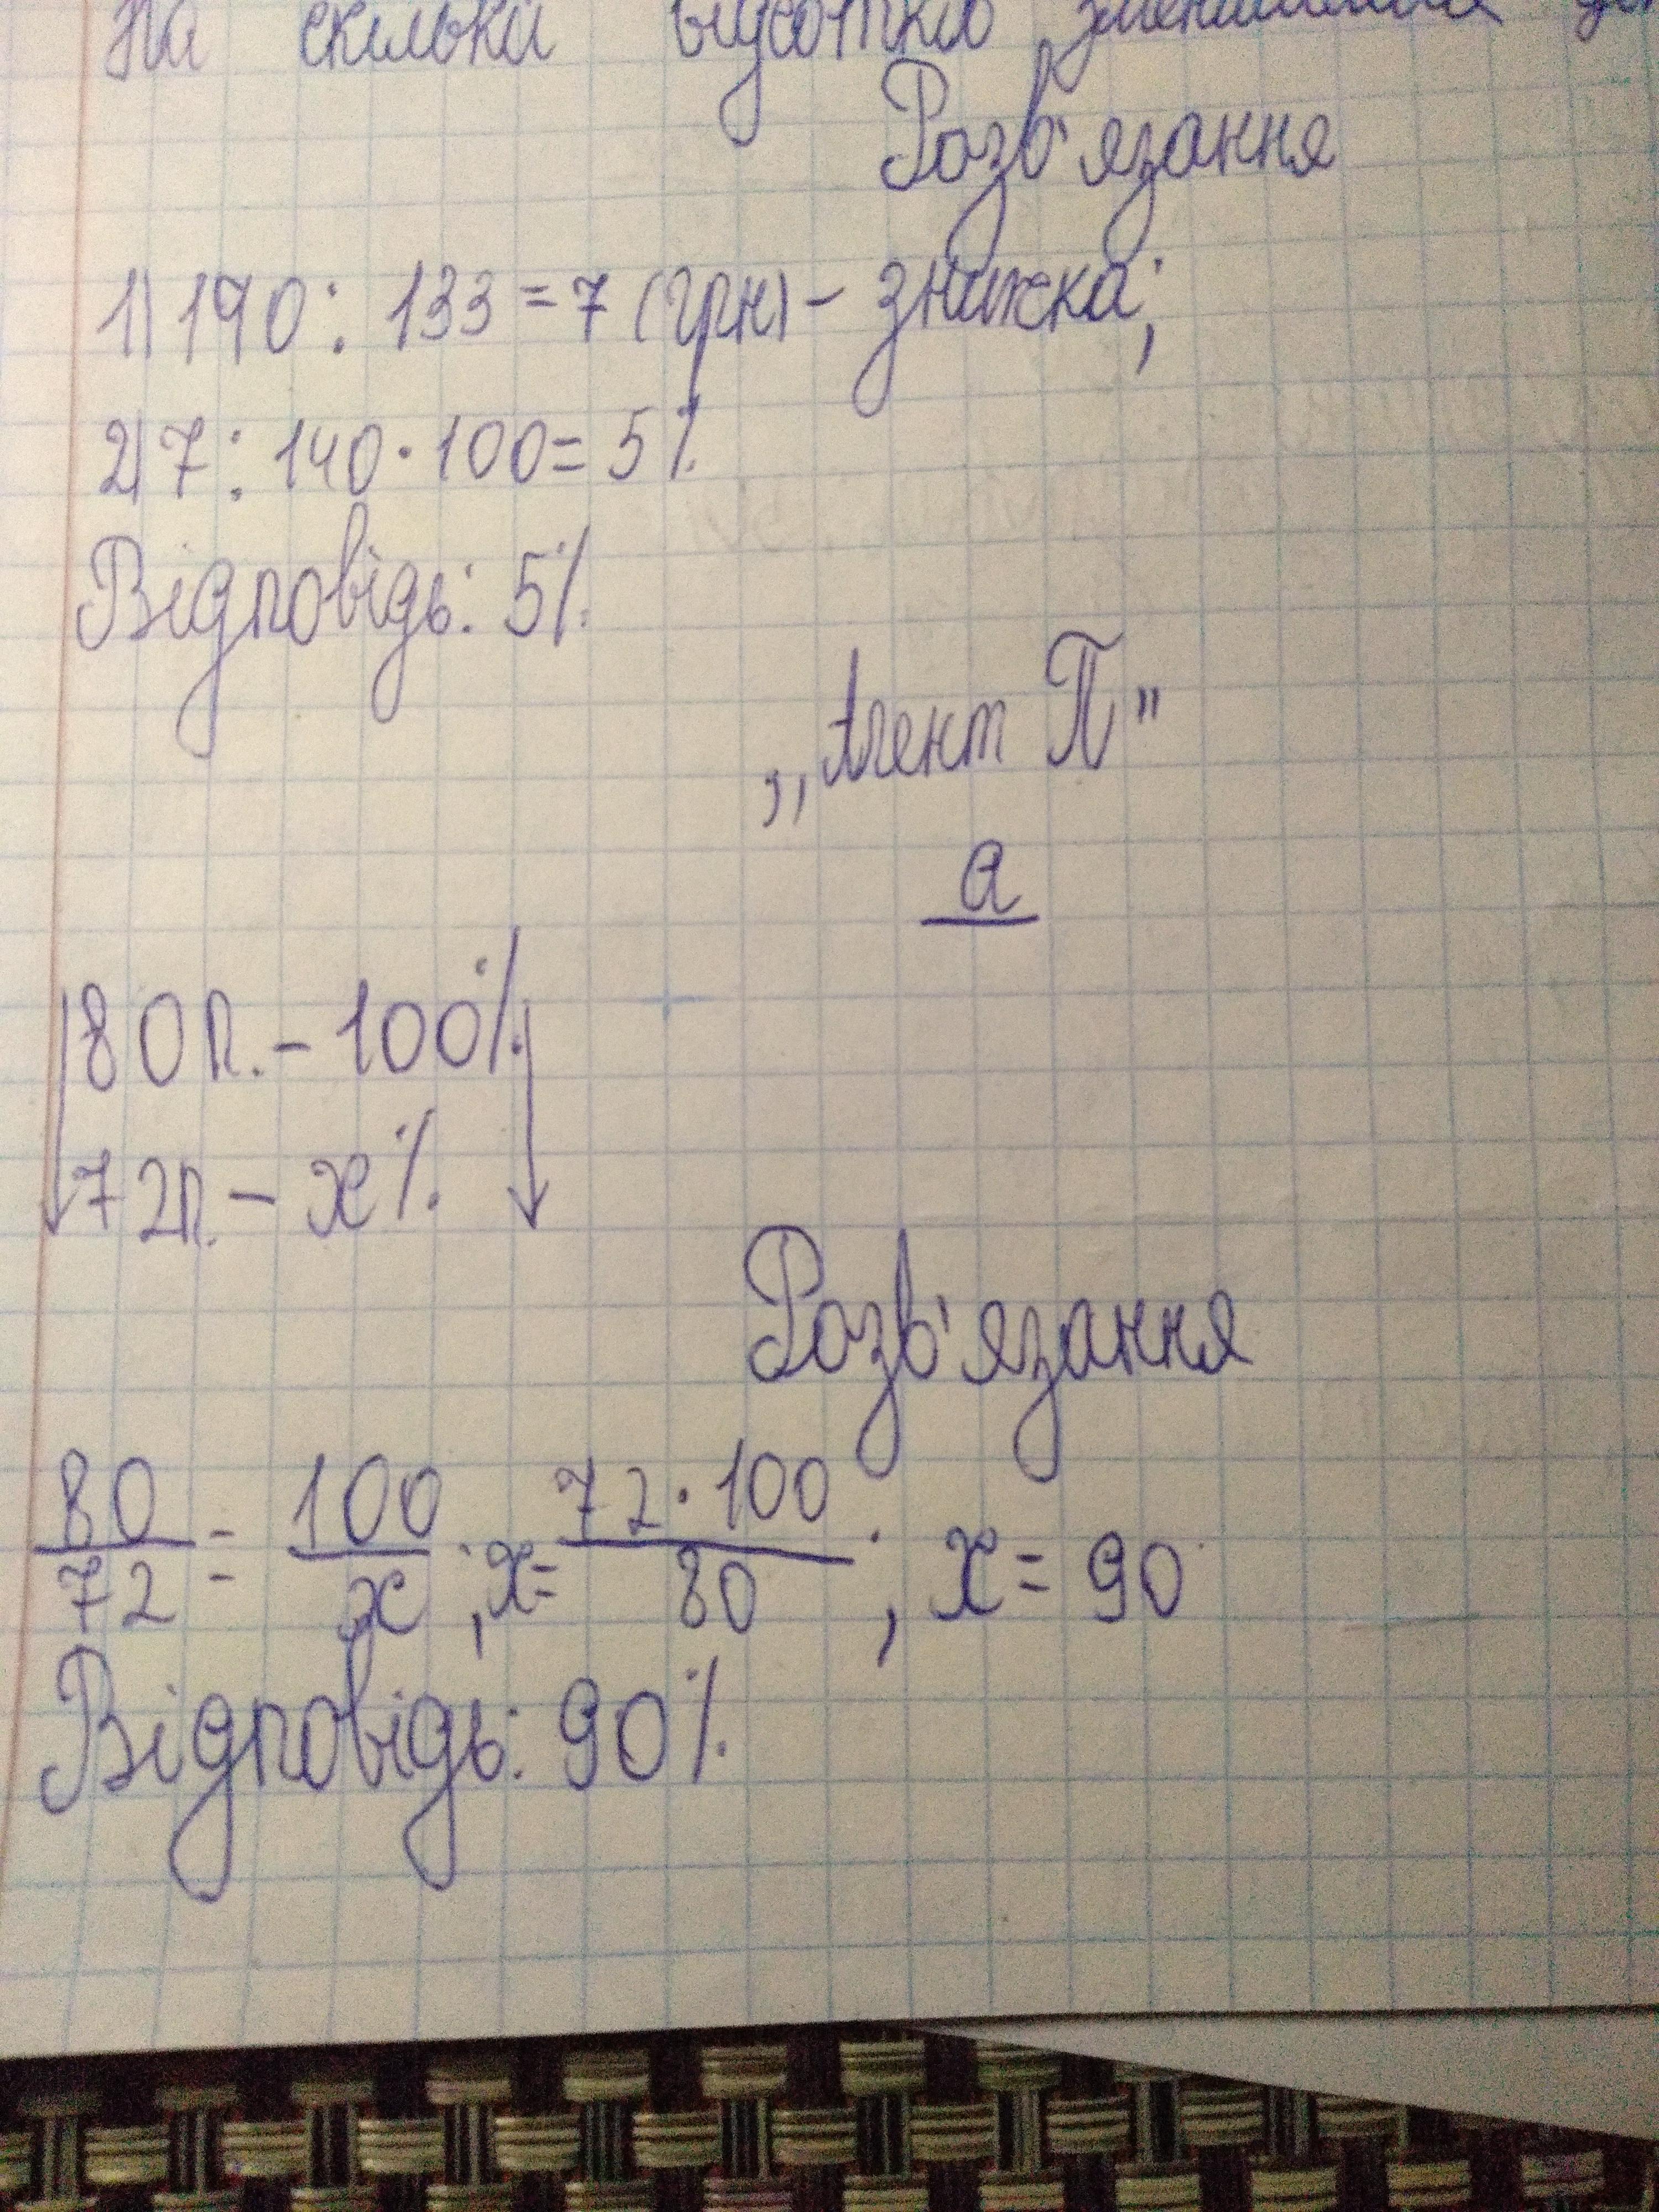 На скільки відсотків зменшилася
Розв'язання
1) 190 : 133 = 7 (грн) - знижка;
2) 7 : 140 · 100 = 5%
Відповідь: 5%
„Агент П"
а
80п. - 100%
72п. - х%
Розв'язання
80/72 = 100/х ; х = 72·100/80 ; х = 90
Відповідь: 90%